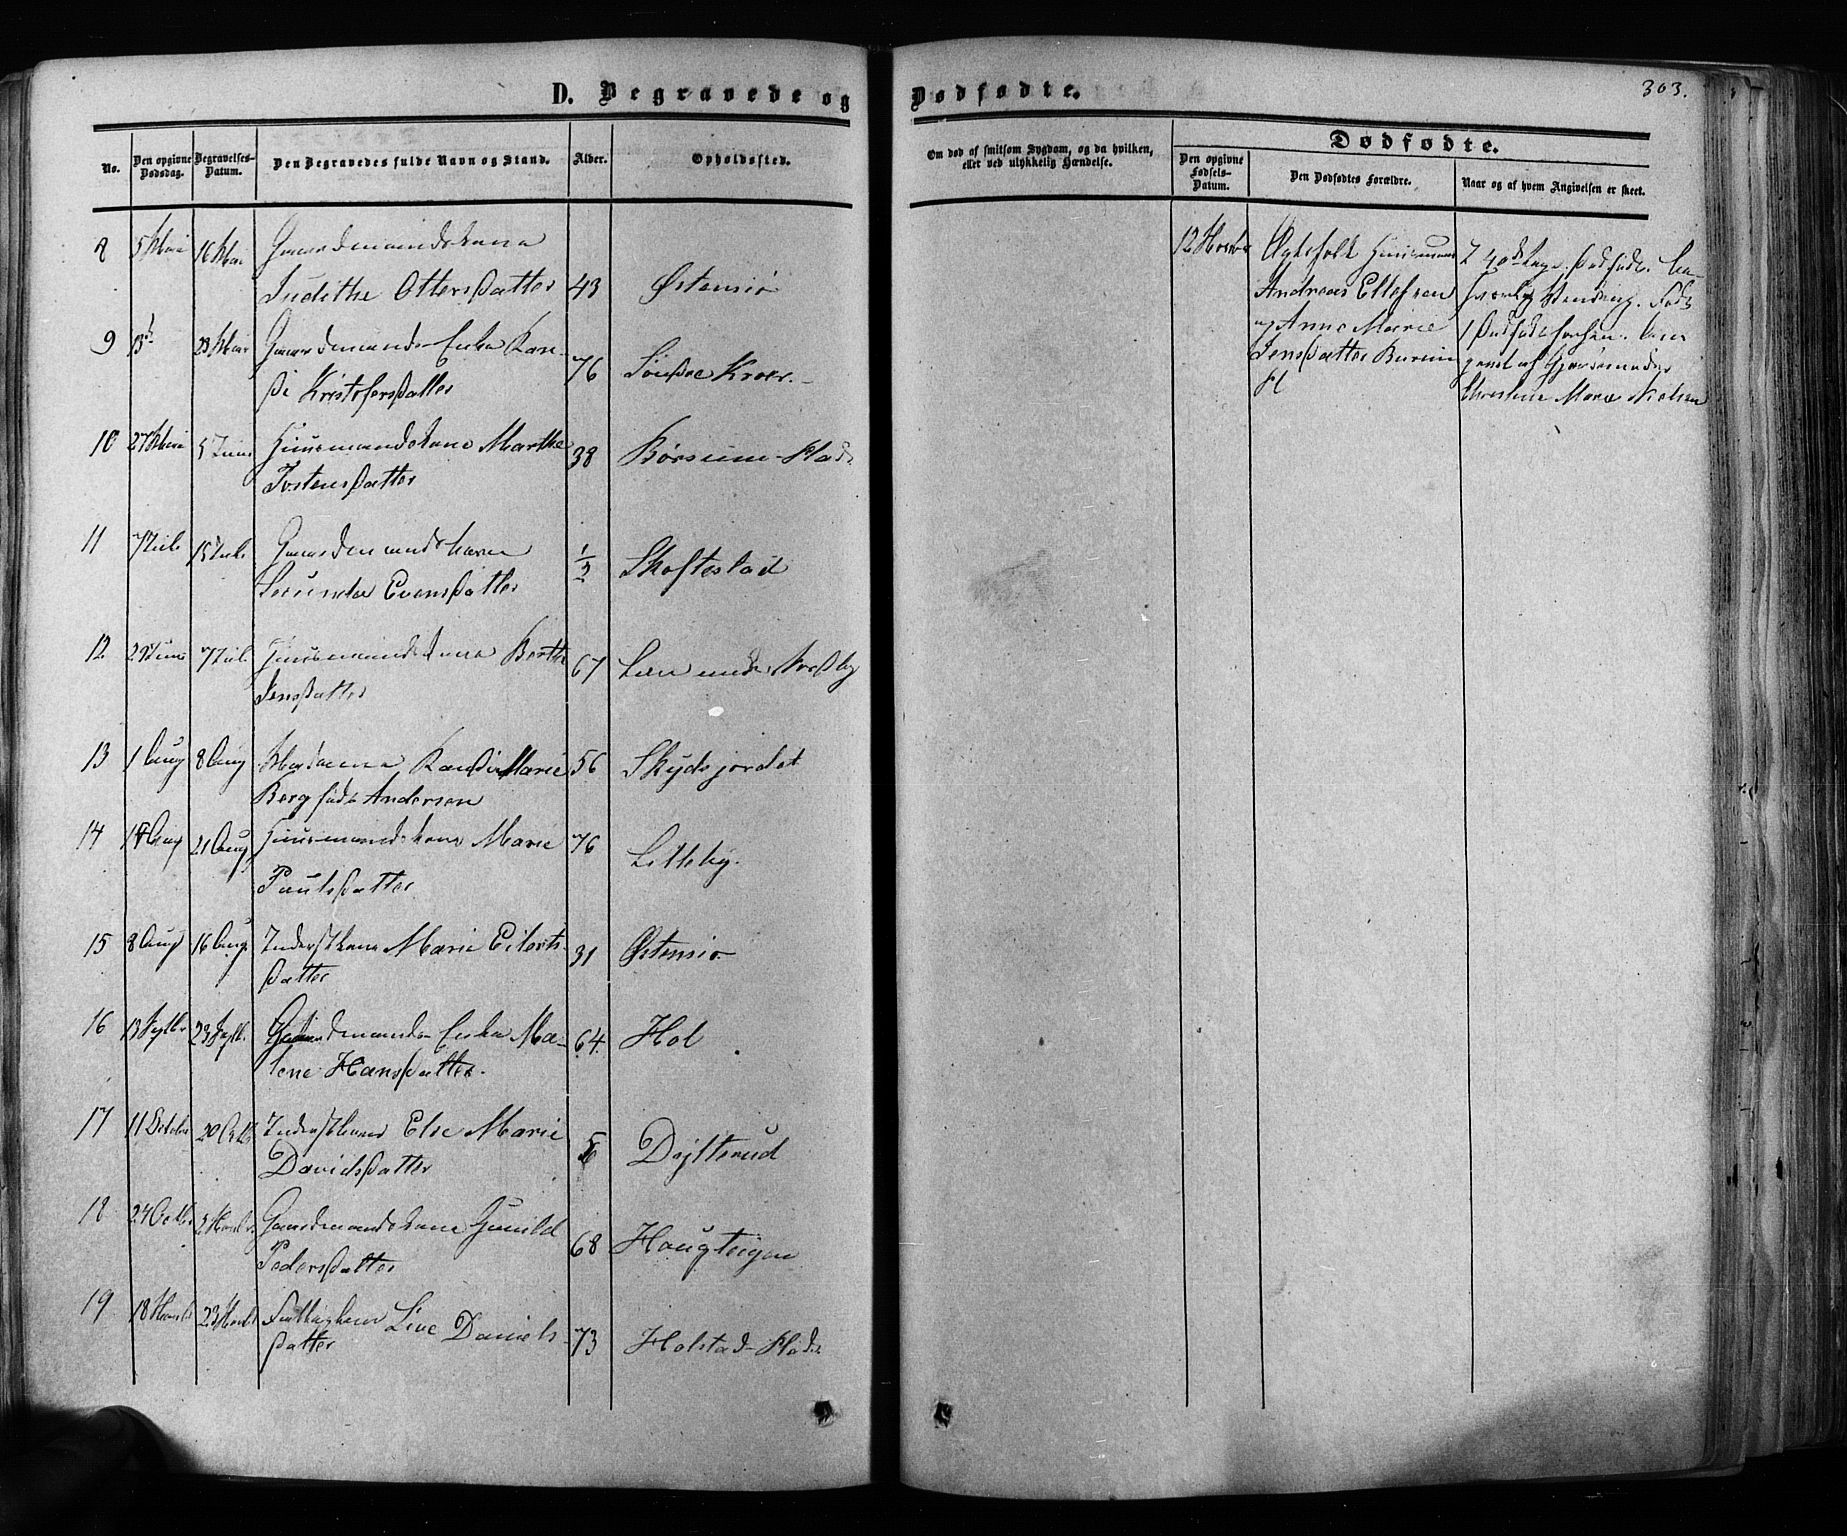 D. Begravede og Dødfødte.
303.
No.
Den opgivne Dødsdag.
Begravelses-Datum.
Den Begravedes fulde Navn og Stand.
Alder.
Opholdssted.
Om død af smitsom Sygdom, og da hvilken,
eller ved ulykkelig Hændelse.
Dødfødte.
Den opgivne Fødsels-Datum.
Den Dødfødtes Forældre.
Naar og af hvem Angivelsen er skeet.
8 5 Mai 16 Mai Gaardmandskone
Judithe Ottersdatter 43 Østensiø
9 13 d 23 Mai Gaardmands-Enke Karen-
Kristofersdatter 76 Søndre Kroer.
10 27 Mai 5 Juni Huusmandskone Marthe
Tostensdatter 38 Børsum-Plads
11 7 Juli 15 Juli Gaardmands
Evensdatter 1/2 Skoftestad
12 29 Juni 7 Juli Huusmandskone Berthe
Jensdatter 67 under
13 1 Aug 8 Aug Madame Marie
Berg født Andersen 56 Skydsjordet
14 14 Aug 21 Aug Huusmandskone Marie
Paulsdatter 76 Lilleby.
15 8 Aug 16 Aug. Inderstkone Marie Eilerts-
datter 31 Østensiø
16 13 Septbr 23 Septb. Gaardmands-Enke Ma-
lene Hansdatter. 64. Hol
17 11 October 20 Octbr Else Marie
Davidsdatter Dysterud
18 24 Octbr 2 Novbr Gaardmandskone Gunild
Pedersdatter 68 Haugteigen
19 18 Novbr 23 Novbr Live Daniels-
datter 73 Holstad-Plads
12 Novbr
Ægtefolk Huusmand
Andreas Ellefsen
og Anne Marie
Jensdatter
Pl
Født
1 Dødfødt forhen.
af Gjordemoder
Christine Marie Nielsen